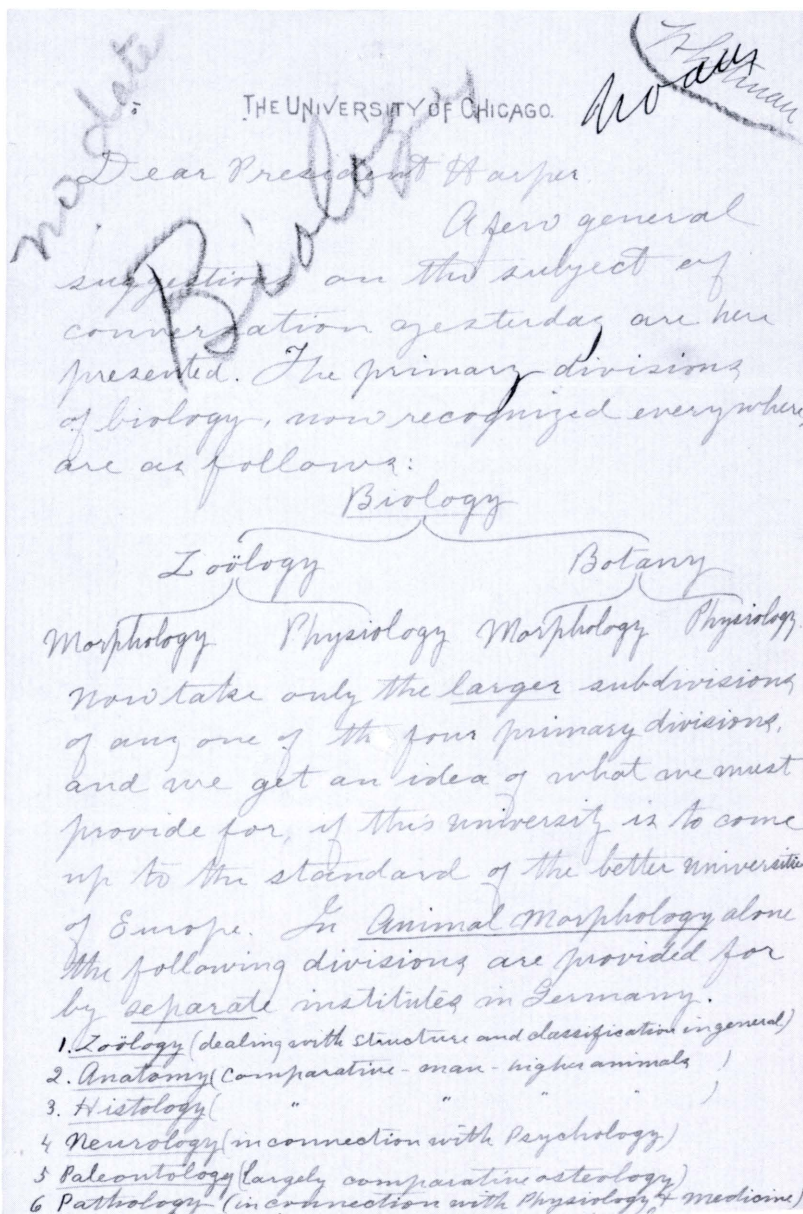 no date
Biology
THE UNIVERSITY OF CHICAGO.
Dear President Harper
A few general
suggestions on the subject of
conversation yesterday are here
presented. The primary divisions
of biology, now recognized everywhere,
are as follows:
Biology
Zoölogy Botany
Morphology Physiology Morphology Physiology.
Now take only the larger subdivisions
of any one of the four primary divisions,
and we get an idea of what we must
provide for, if this university is to come
up to the standard of the better universities
of Europe. In Animal Morphology alone
the following divisions are provided for
by separate institutes in Germany.
1. Zoölogy (dealing with structure and classification in general)
2. Anatomy (comparative - man - higher animals )
3. Histology ( " " " " )
4 Neurology (in connection with Psychology)
5 Paleontology (largely comparative osteology)
6 Pathology (in connection with Physiology & medicine)